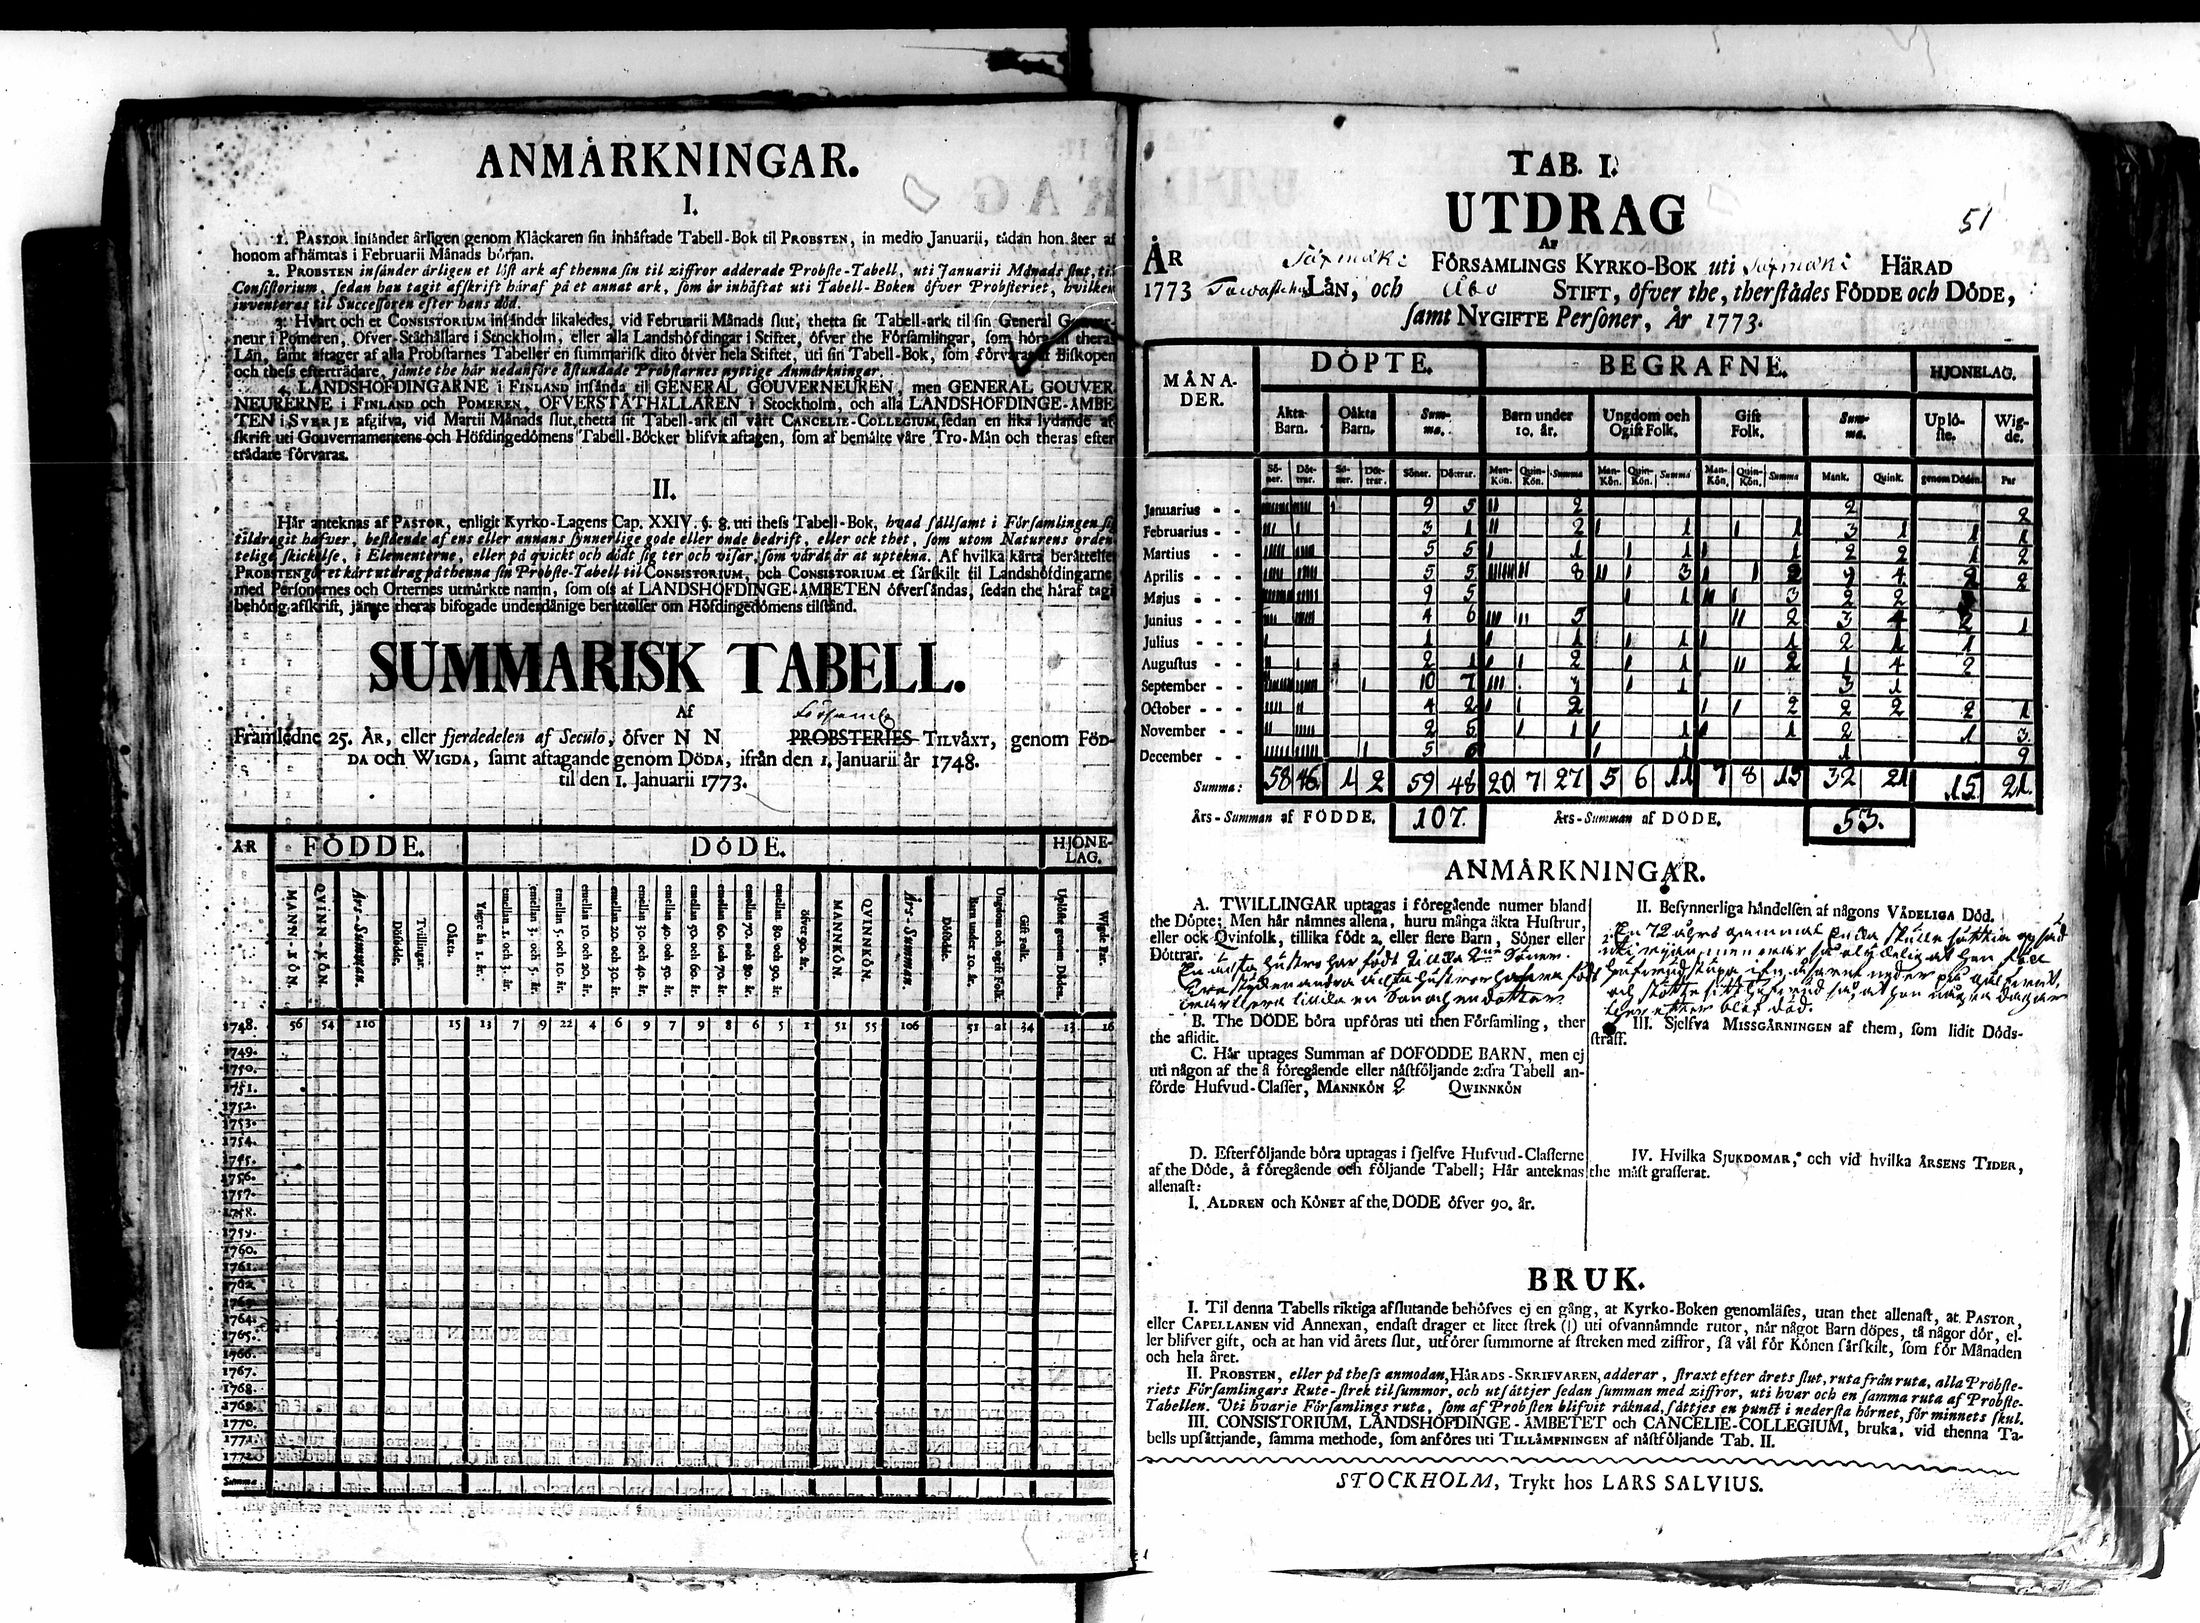 ANMÄRKNINGAR.
I.
1. PASTOR insänder årligen genom Klåckaren sin inhäftade Tabell-Bok til PROBSTEN, in medio Januarii, tådan hon åter af
honom afhämtas i Februarii Månads början.
2. PROBSTEN insänder årligen et löst ark af thenna sin til ziffror adderade Probste-Tabell, uti Januarii Månads slut, til
Consistorium, sedan han tagit afskrift håraf på et annat ark, som år inhäftat uti Tabell-Boken öfver Probsteriet, hvilken
inventeras til Successoren efter hans död.
3. Hvart och et CONSISTORIUM insänder likaledes, vid Februarii Månads slut, thetta sit Tabell-ark til sin General Gouver-
neur i Pomeren, Öfver-Ståthållare i Stockholm, eller alla Landshöfdingar i Stiftet, öfver the Församlingar, som höra til theras
Län, samt aftager af alla Probstarnes Tabeller en summarisk dito öfver hela Stiftet, uti sin Tabell-Bok, som förvaras af Biskopen
och thess efterträdare, jämte the här nedanföre åstundade Probstarnes nyttige Anmärkningar.
4. LANDSHÖFDINGARNE i FINLAND insända til GENERAL GOUVERNEUREN, men GENERAL GOUVER-
NEURERNE i FINLAND och POMEREN, ÖFVERSTÅTHÅLLAREN i Stockholm, och alla LANDSHÖFDINGE-ÄMBE-
TEN i SVERJE afgifva, vid Martii Månads slut, thetta sit Tabell-ark til vårt CANCELIE-COLLEGIUM, sedan en lika lydande af-
skrift uti Gouvernamentens och Höfdingedömens Tabell-Böcker blifvit aftagen, som af bemälte våre Tro-Män och theras efter-
trädare förvaras.
II.
Här anteknas af PASTOR, enligit Kyrko-Lagens Cap. XXIV. §. 8. uti thess Tabell-Bok, hvad sällsamt i Församlingen sig
tildragit hafver, bestående af ens eller annans synnerlige gode eller onde bedrift, eller ock thet, som utom Naturens orden-
telige skickelse, i Elementerne, eller på qvickt och dödt sig ter och visar, som värdt är at uptekna. Af hvilka kårta berättelser
PROBSTEN gör et kårt utdrag på thenna sin Probste-Tabell til CONSISTORIUM, och CONSISTORIUM et särskilt til Landshöfdingarne
med Personernes och Orternes utmärkte namn, som oss af LANDSHÖFDINGE-ÄMBETEN öfversändas, sedan the häraf tagit
behörig afskrift, jämte theras bifogade underdånige berättelser om Höfdingedömens tilstånd.
SUMMARISK TABELL.
Af
Församl
Framledne 25. ÅR, eller fjerdedelen af Seculo, öfver N N PROBSTERIES TILVÄXT, genom FÖD-
DA och WIGDA, samt aftagande genom DÖDA, ifrån den 1. Januarii år 1748.
til den 1. Januarii 1773.
ÅR FÖDDE. DÖDE. HJONE-
LAG.
MANN-KÖN. QVINN-KÖN. Års-Summan. Döfödde. Tvillingar. Oäkta. Yngre än 1. år. emellan 1. och 3. år. emellan 3. och 5. år. emellan 5. och 10. år. emellan 10 och 20. år. emellan 20. och 30. år. emellan 30. och 40. år. emellan 40. och 50. år. emellan 50. och 60. år. emellan 60. och 70. år. emellan 70. och 80. år. emellan 80. och 90. år. öfver 90. år. MANNKÖN. QVINNKÖN. Års-Summan. Dödfödde. Barn under 10. år. Ungdom och ogift Folk. Gift Folk. Uplöste genom Döden. Wigde Par.
1748. 56 54 110 15 13 7 9 22 4 6 9 7 9 8 6 5 1 51 55 106 51 21 34 13 16
1749.
1750.
1751.
1752.
1753.
1754.
1755.
1756.
1757.
1758.
1759.
1760.
1761.
1762.
1763.
1764.
1765.
1766.
1767.
1768.
1769.
1770.
1771.
1772.
Summa
TAB. I.
UTDRAG
51
AF
ÅR Sáxmäki FÖRSAMLINGS KYRKO-BOK uti Saxmäki HÄRAD
1773 LÄN, och Åbo STIFT, öfver the, therstädes FÖDDE och DÖDE,
samt NYGIFTE Personer, År 1773.
MÅNA-
DER. DÖPTE. BEGRAFNE. HJONELAG.
Äkta Barn. Oäkta Barn. Summa. Barn under 10. år. Ungdom och Ogift Folk. Gift Folk. Summa. Uplöste. Wigde.
Söner. Döttrar. Söner. Döttrar. Söner. Döttrar. Man-Kön. Quin-Kön. Summa Man-Kön. Quin-Kön. Summa Man-Kön. Quin-Kön. Summa Mank. Quink. genom Döden. Par
Januarius - - 9 5 2 2 2
Februarius - - 3 1 2 1 1 3 1 1 1
Martius - - - 5 5 1 1 1 2 2 1 2
Aprilis - - - 5 5 8 3 2 4 2 2
Majus - - - 9 5 1 3 2 2
Junius - - - 4 6 5 2 3 4 2 1
Julius - - - 1 1 1 1 2 1 1
Augustus - - 2 1 2 1 2 1 4 2
September - - 10 7 3 1 3 1
October - - - 4 2 2 2 2 2 2 1
November - - 2 5 1 1 1 2 1 3
December - - 5 6 1 1 9
Summa: 58 46 1 2 59 48 20 7 27 5 6 11 7 8 15 32 21 15. 21.
Års-Summan af FÖDDE. 107. Års-Summan af DÖDE. 53.
ANMÄRKNINGAR.
A. TWILLINGAR uptagas i föregående numer bland
the Döpte; Men här nämnes allena, huru många äkta Hustrur,
eller ock Qvinfolk, tillika födt 2, eller flere Barn, Söner eller
Döttrar.
B. The DÖDE böra upföras uti then Församling, ther
the aflidit.
C. Här uptages Summan af DÖFÖDDE BARN, men ej
uti någon af the å föregående eller nästföljande 2:dra Tabell an-
förde Hufvud-Classer, MANNKÖN 2 QWINNKÖN
D. Efterföljande böra uptagas i sjelfve Hufvud-Classerne
af the Döde, å föregående och följande Tabell; Här anteknas
allenast:
I. ÅLDREN och KÖNET af the DÖDE öfver 90. år.
II. Besynnerliga händelsen af någons VÅDELIGA Död.
III. Sjelfva MISSGÄRNINGEN af them, som lidit Döds-
straff.
IV. Hvilka SJUKDOMAR, och vid hvilka ÅRSENS TIDER,
the mäst grasserat.
BRUK.
I. Til denna Tabells riktiga afslutande behöfves ej en gång, at Kyrko-Boken genomläses, utan thet allenast, at PASTOR,
eller CAPELLANEN vid Annexan, endast drager et litet strek (|) uti ofvannämnde rutor, når något Barn döpes, tå någor dör, el-
ler blifver gift, och at han vid årets slut, utförer summorne af streken med ziffror, så väl för Könen särskilt, som för Månaden
och hela året.
II. PROBSTEN, eller på thess anmodan, HÄRADS-SKRIFVAREN, adderar, straxt efter årets slut, ruta från ruta, alla Probste-
riets Församlingars Rute-strek tilsummor, och utsättjer sedan summan med ziffror, uti hvar och en samma ruta af Probste-
Tabellen. Uti hvarje Församlings ruta, som af Probsten blifvit räknad, sättjes en punct i nedersta hörnet, för minnets skul.
III. CONSISTORIUM, LANDSHÖFDINGE-ÄMBETET och CANCELIE-COLLEGIUM, bruka, vid thenna Ta-
bells upsättjande, samma methode, som anföres uti TILLÄMPNINGEN af nästföljande Tab. II.
STOCKHOLM, Trykt hos LARS SALVIUS.